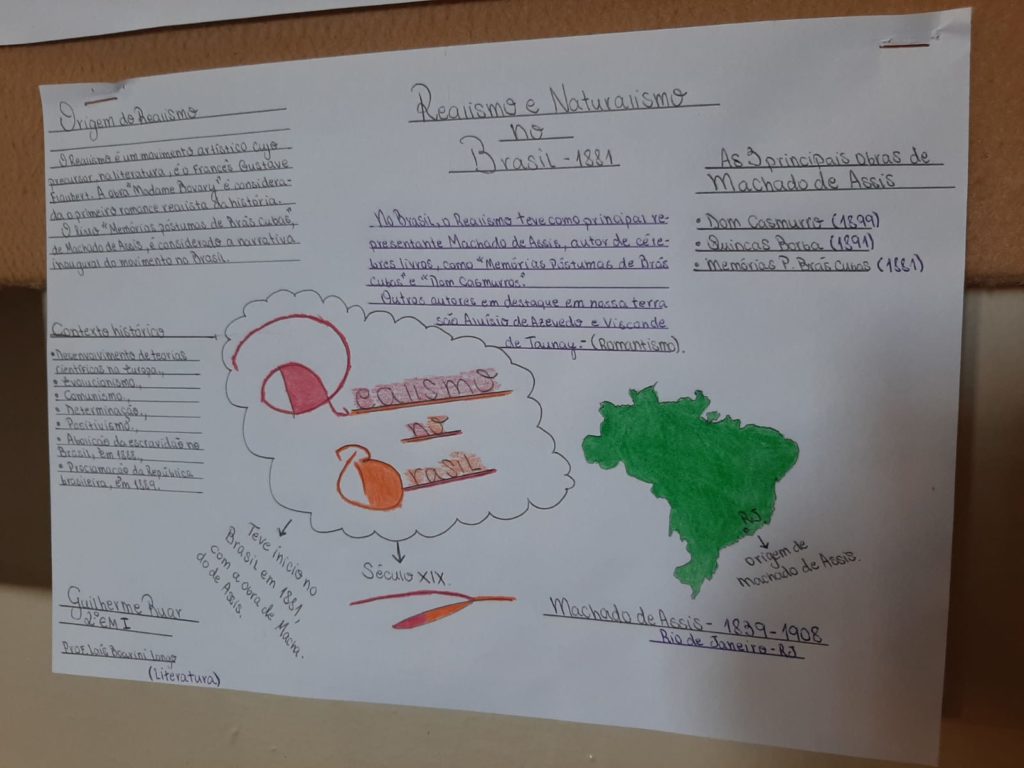 Origem do Realismo
O Realismo é um movimento artístico cujo
precursor na literatura, é o Francês Gustave
Flaubert. A obra "Madame Bovary" é considera-
da o primeiro romance realista da história.
O livro "Memórias póstumas de Brás Cubas,"
de Machado de Assis, é considerado a narrativa
inaugural do movimento no Brasil.
Contexto histórico
• Desenvolvimento de teorias
científicas na Europa.,
• Evolucionismo.,
• Comunismo.,
• Determinação.,
• Positivismo.,
• Abolição da escravidão no
Brasil, em 1888.,
• Proclamação da República
brasileira, em 1889.
Realismo e Naturalismo
no
Brasil - 1881
No Brasil, o Realismo teve como principal re-
presentante Machado de Assis, autor de céle-
bres livros, como "Memórias Póstumas de Brás
Cubas" e "Dom Casmurros".
Outros autores em destaque em nossa terra
são Aluísio de Azevedo e Visconde
de Taunay - (Romantismo).
As 3 principais obras de
Machado de Assis
• Dom Casmurro (1899)
• Quincas Borba (1891)
• Memórias P. Brás Cubas (1881)
Realismo
no
Brasil
Teve início no
Brasil em 1881,
com a obra de Macha.
do de Assis.
Século XIX.
RJ
origem de
machado de Assis.
Machado de Assis - 1839-1908
Rio de Janeiro - RJ
Guilherme Ruar
2° EM I
Prof. Laís
(Literatura)